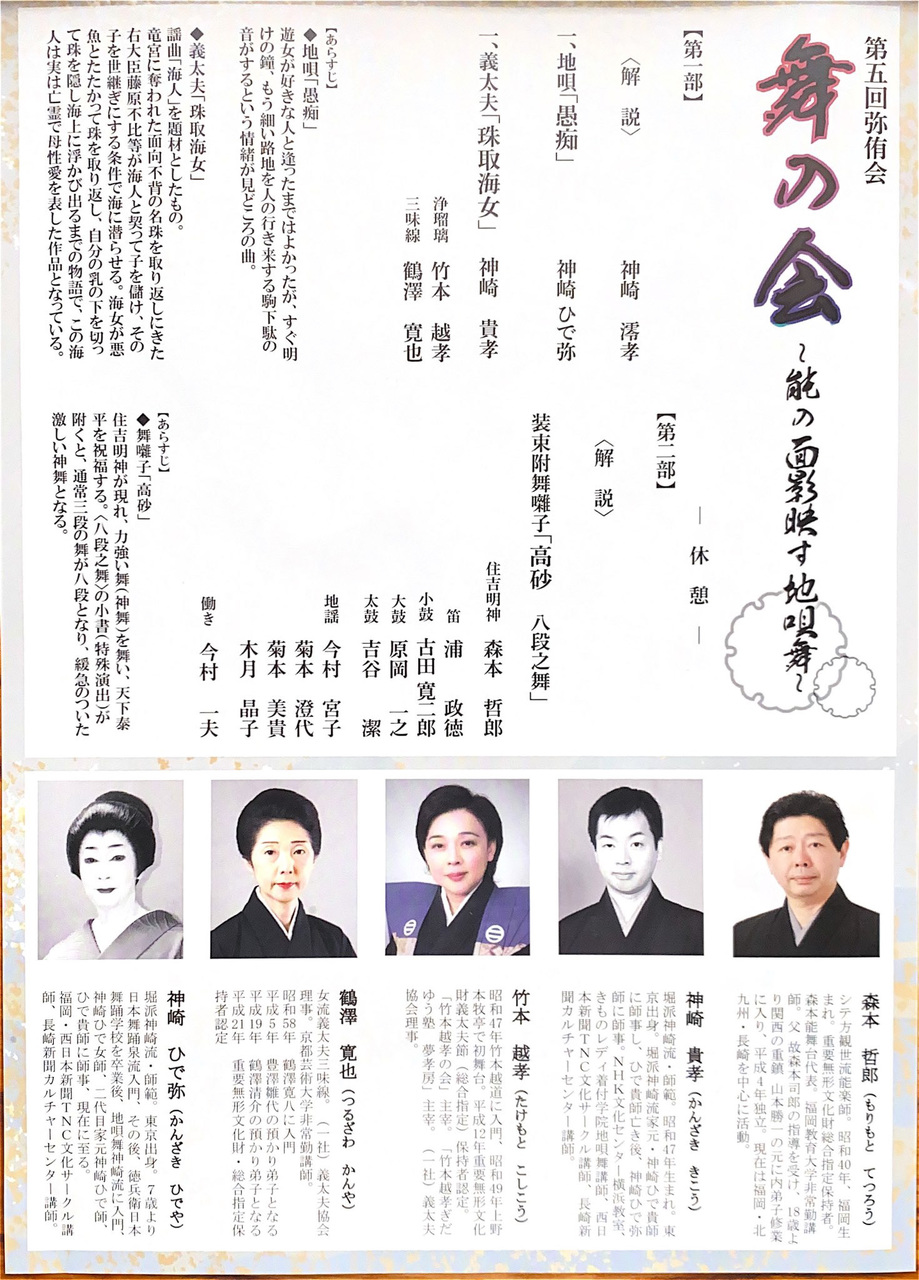 第五回弥侑会
舞の会
～能の面影映す地唄舞～
【第一部】
〈解説〉
神崎 澪孝
一、地唄「愚痴」
神崎 ひで弥
一、義太夫「珠取海女」
神崎 貴孝
浄瑠璃 竹本 越孝
三味線 鶴澤 寛也
【あらすじ】
◆地唄「愚痴」
遊女が好きな人と逢ったまではよかったが、すぐ明
けの鐘、もう細い路地を人の行き来する駒下駄の
音がするという情緒が見どころの曲。
◆義太夫「珠取海女」
謡曲「海人」を題材としたもの。
竜宮に奪われた面向不背の名珠を取り返しにきた
右大臣藤原不比等が海人と契って子を儲け、その
子を世継ぎにする条件で海に潜らせる。海女が悪
魚とたたかって珠を取り返し、自分の乳の下を切っ
て珠を隠し海上に浮かび出るまでの物語で、この海
人は実は亡霊で母性愛を表した作品となっている。
― 休憩 ―
【第二部】
〈解説〉
装束附舞囃子「高砂 八段之舞」
住吉明神 森本 哲郎
笛 浦 政徳
小鼓 古田 寛二郎
大鼓 原岡 一之
太鼓 吉谷 潔
地謡 今村 宮子
菊本 澄代
菊本 美貴
木月 晶子
働き 今村 一夫
【あらすじ】
◆舞囃子「高砂」
住吉明神が現れ、力強い舞(神舞)を舞い、天下泰
平を祝福する。〈八段之舞〉の小書(特殊演出)が
附くと、通常三段の舞が八段となり、緩急のついた
激しい神舞となる。
森本 哲郎(もりもと てつろう)
シテ方観世流能楽師。昭和40年、福岡生
まれ。重要無形文化財総合指定保持者。
森本能舞台代表。福岡教育大学非常勤講
師。父 故森本司郎の指導を受け、18歳よ
り関西の重鎮 山本勝一の元に内弟子修業
に入り、平成4年独立。現在は福岡・北
九州・長崎を中心に活動。
神崎 貴孝(かんざき きこう)
堀派神崎流・師範。昭和47年生まれ。東
京出身。堀派神崎流家元・神崎ひで貴師
に師事し、ひで貴師亡き後、神崎ひで弥
師に師事。NHK文化センター横浜教室、
きものレディ着付学院地唄舞講師、西日
本新聞TNC文化サークル講師、長崎新
聞カルチャーセンター講師。
竹本 越孝(たけもと こしこう)
昭和47年竹本越道に入門、昭和49年上野
本牧亭で初舞台。平成12年重要無形文化
財義太夫節(総合指定)保持者認定。
「竹本越孝の会」主宰。「竹本越孝ぎだ
ゆう塾 夢孝房」主宰。(一社)義太夫
協会理事。
鶴澤 寛也(つるざわ かんや)
女流義太夫三味線。(一社)義太夫協会
理事。京都芸術大学非常勤講師。
昭和58年 鶴澤寛八に入門
平成5年 豊澤雛代の預かり弟子となる
平成19年 鶴澤清介の預かり弟子となる
平成21年 重要無形文化財・総合指定保
持者認定
神崎 ひで弥(かんざき ひでや)
堀派神崎流・師範。東京出身。7歳より
日本舞踊泉流入門。その後、徳兵衛日本
舞踊学校を卒業後、地唄舞神崎流に入門、
神崎ひで女師、二代目家元神崎ひで師、
ひで貴師に師事、現在に至る。
福岡・西日本新聞TNC文化サークル講
師、長崎新聞カルチャーセンター講師。